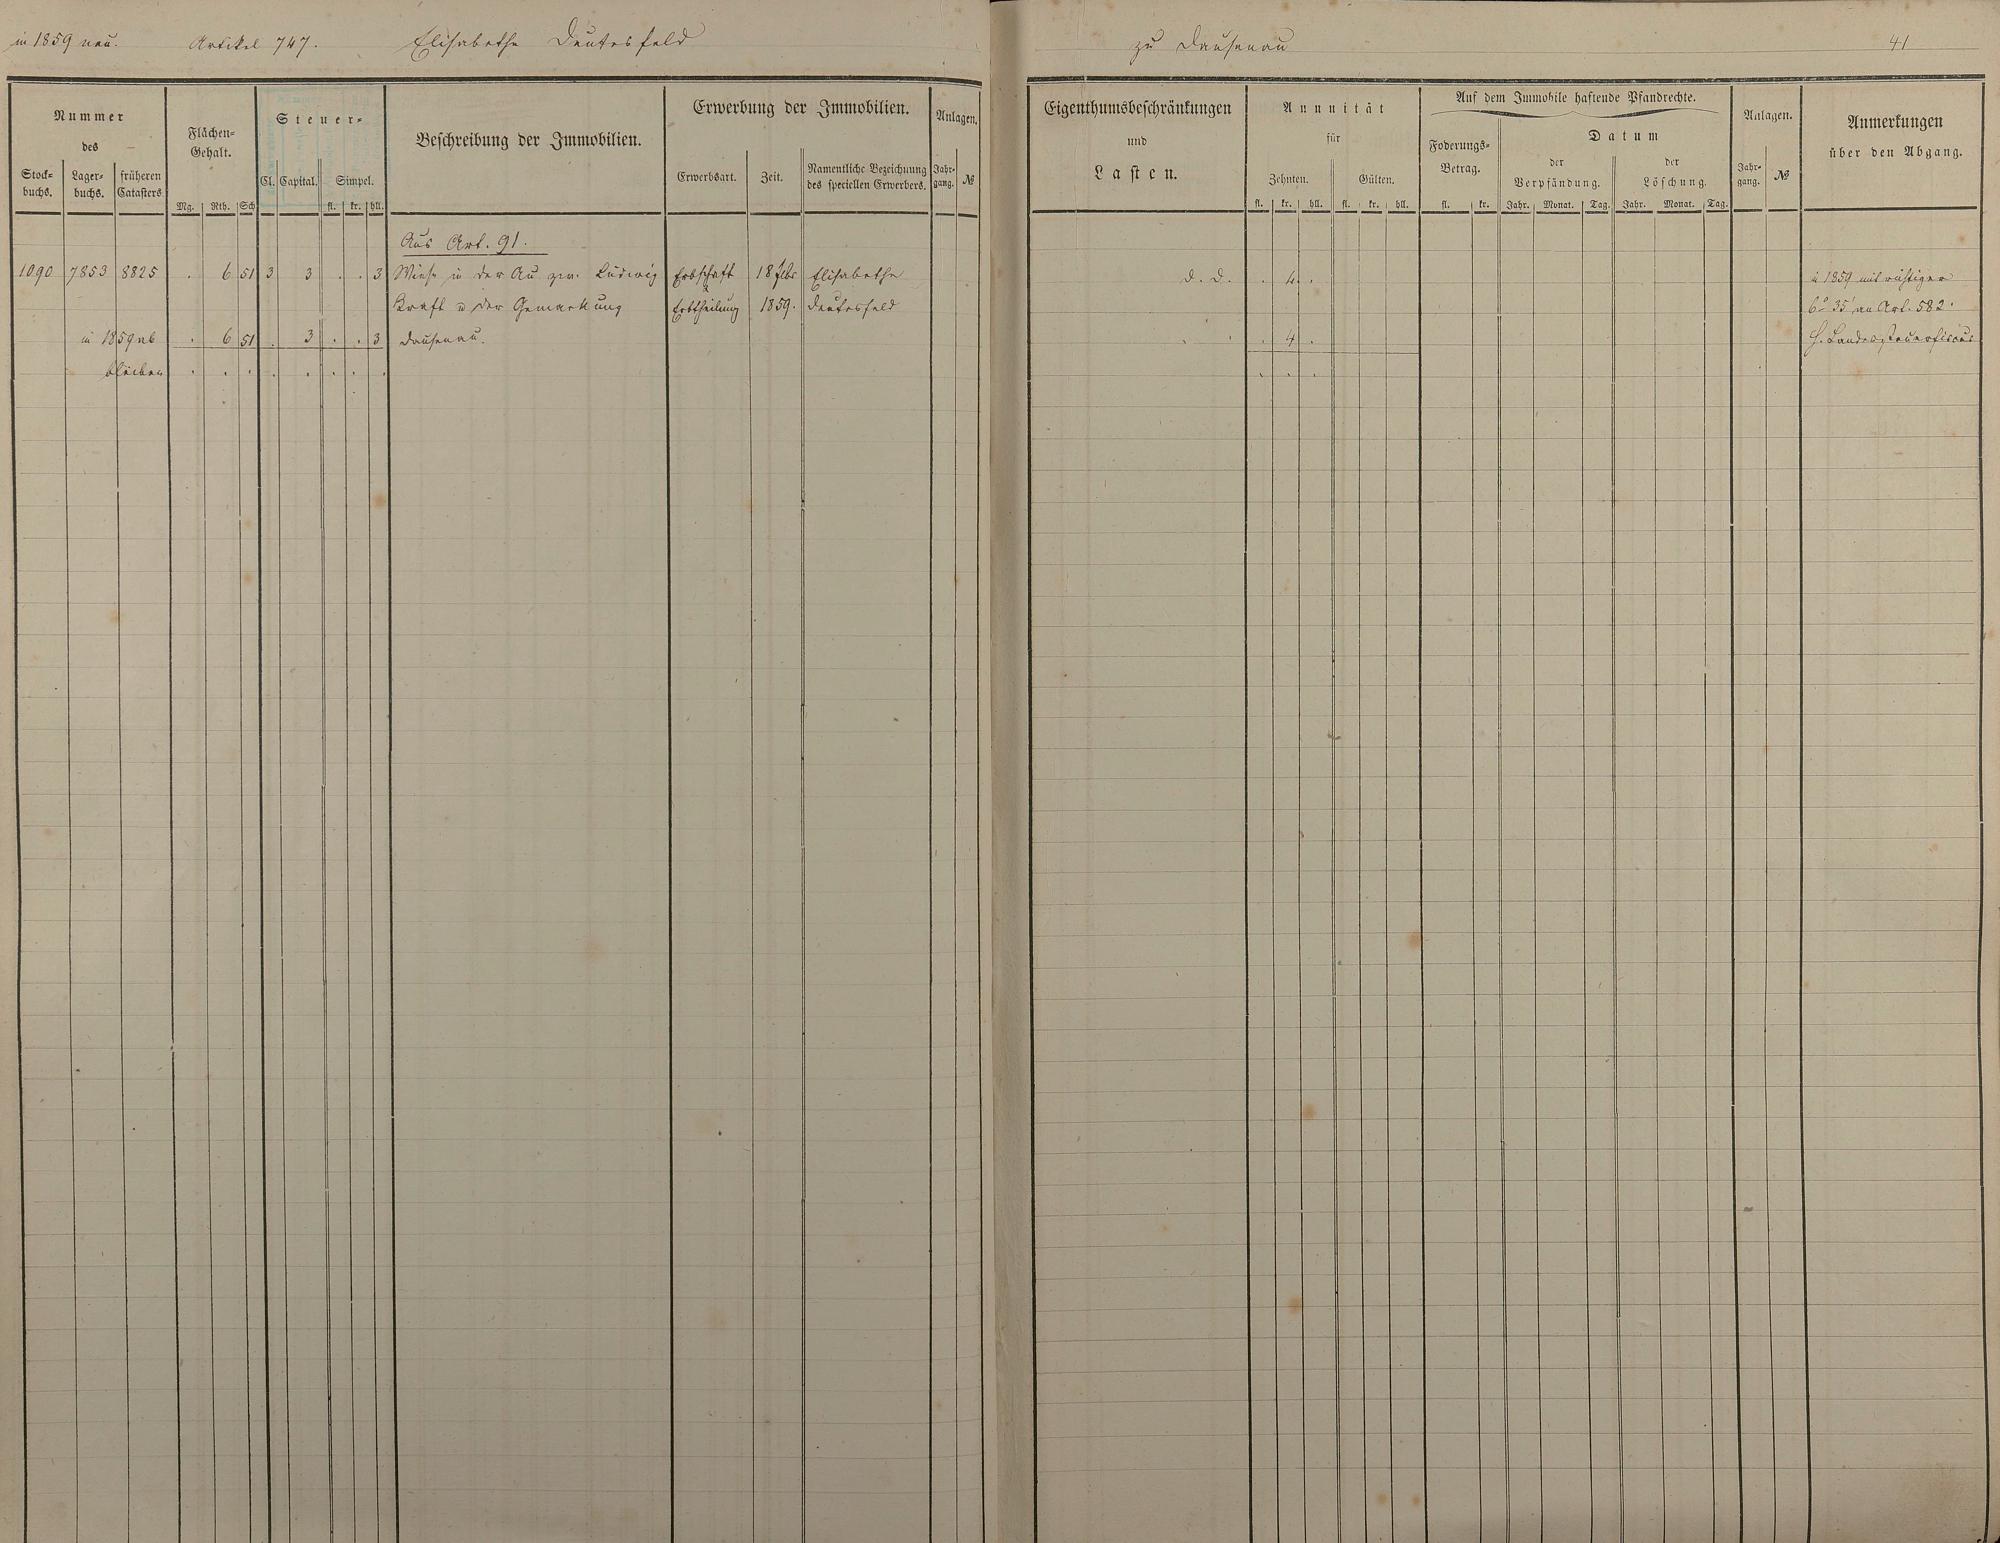 in 1859 neu. Artikel 747. Elisabetha Deutesfeld zu Dausenau 41
Nummer
des
Stock-
buchs.
Lager-
buchs.
früheren
Catasters
Flächen-
Gehalt.
Mg. Rth. Sch.
Steuer-
Cl. Capital. Simpel.
fl. kr. hll.
Beschreibung der Immobilien.
Erwerbung der Immobilien.
Erwerbsart. Zeit.
Namentliche Bezeichnung
des speciellen Erwerbers.
Anlagen.
Jahr-
gang. №
Eigenthumsbeschränkungen
und
Lasten.
Annuität
für
Zehnten. Gülten.
fl. kr. hll. fl. kr. hll.
Auf dem Immobile haftende Pfandrechte.
Foderungs-
Betrag.
fl. kr.
Datum
der
Verpfändung.
der
Löschung.
Jahr. Monat. Tag. Jahr. Monat. Tag.
Anlagen.
Jahr-
gang. №
Anmerkungen
über den Abgang.
Aus Art. 91.
1090 7853 8825 . 6 51 3 3 . . 3 Wiese in der Au zw. Ludwig Erbschaft 18 Febr Elisabethe d. d. . 4. . in 1859 mit
Kraft u der Gemarkung Erbtheilung 1859. Deutesfeld 6° 35' an Art. 582.
in 1859 ab . 6 51 . 3 . . 3 Dausenau. . 4 . H. Landessteuerfiscus
bleiben . . . . . . . . . . .